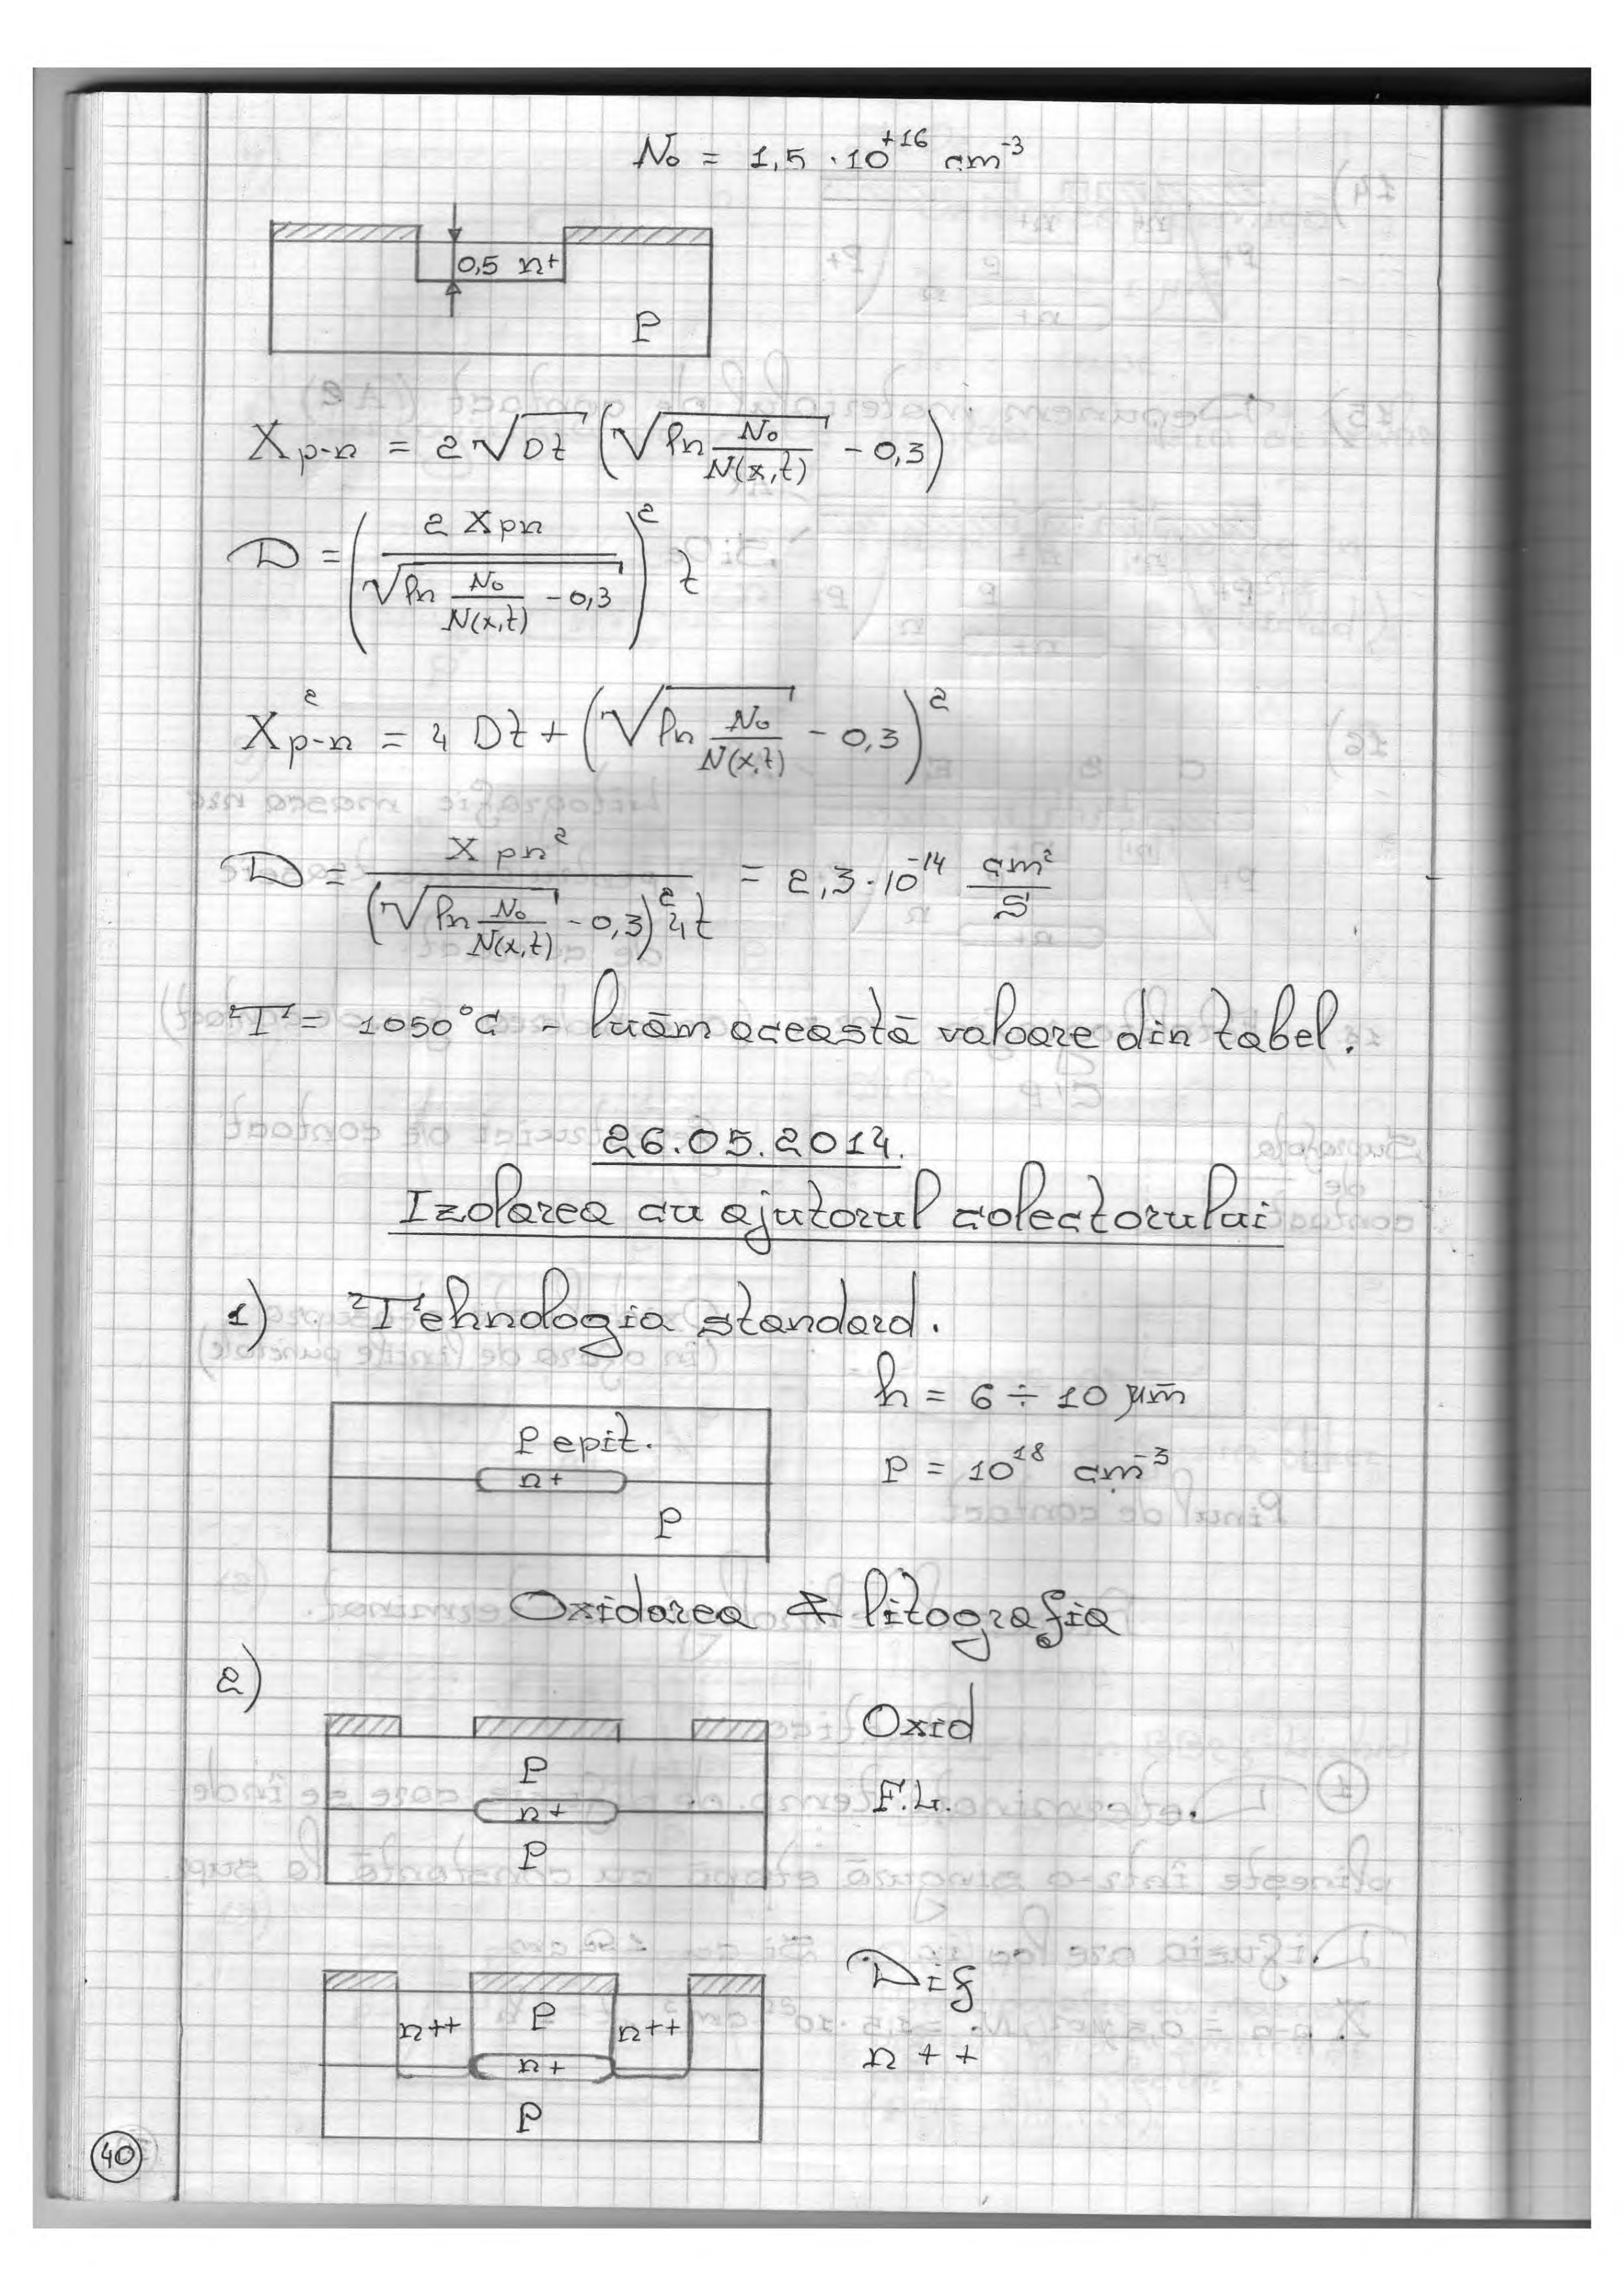 N₀ = 1,5 · 10⁺¹⁶ cm⁻³
0,5 n+
P
Xp-n = 2√Dt (√ln N₀/N(x,t) - 0,3)
D = (2 Xpn / √ln N₀/N(x,t) - 0,3)² t
X²p-n = 4 Dt + (√ln N₀/N(x,t) - 0,3)²
D = X pn² / (√ln N₀/N(x,t) - 0,3)² 4t = 2,3 · 10⁻¹⁴ cm²/S
T = 1050°C - luăm această valoare din tabel.
26.05.2014.
Izolarea cu ajutorul colectorului
1) Tehnologia standard.
h = 6 ÷ 10 μm
P epit.
n+
P = 10¹⁸ cm⁻³
P
Oxidarea & litografia
2)
Oxid
P
F.L.
n+
P
Dif
n++ P n++
n++
n+
P
40